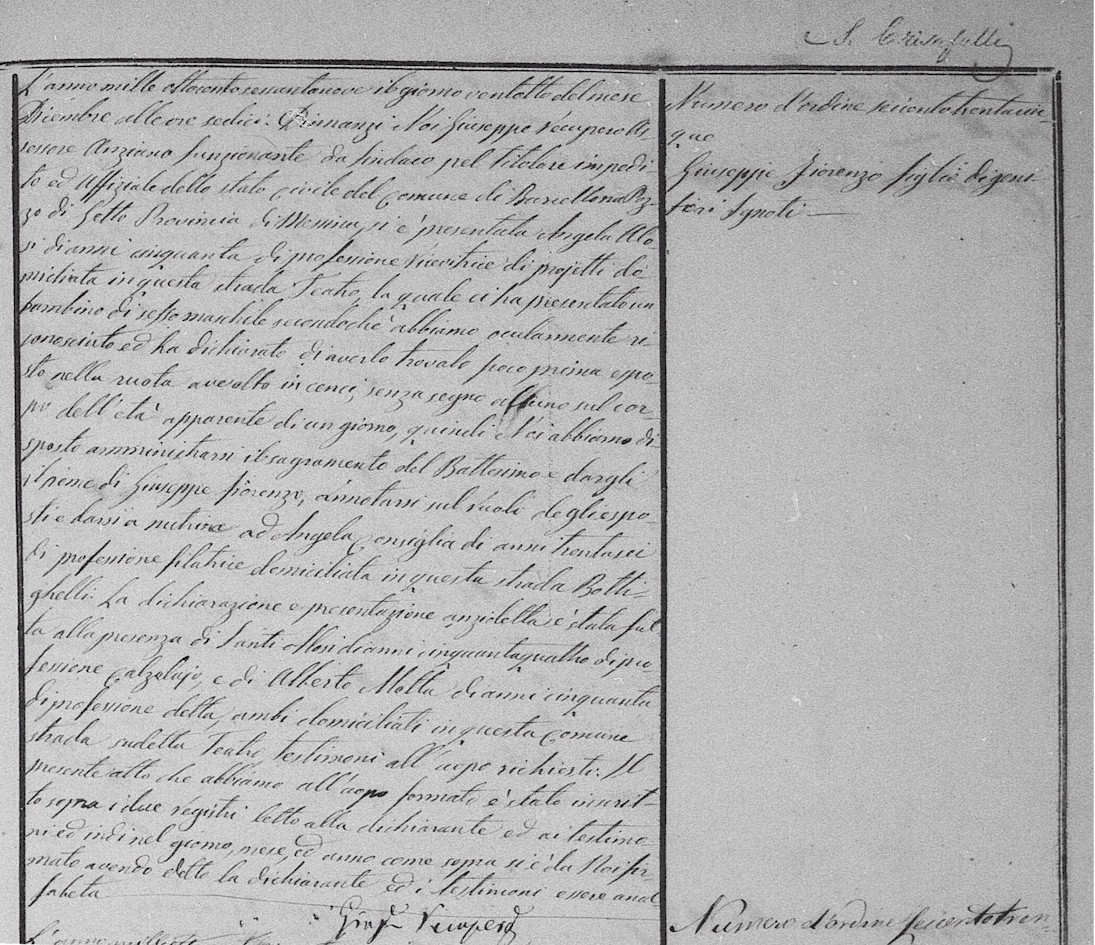 S. Crisafulli
L'anno mille ottocento sessantanove il giorno ventotto del mese
Dicembre alle ore sedici. Dinnanzi Noi Giuseppe Recupero As
sessore Anziano funzionante da Sindaco pel titolare impedi
to ed Uffiziale dello stato Civile del Comune di Barcellona Poz
zo di Gotto Provincia di Messina, si è presentata Angela Alo
si di anni cinquanta di professione ricevitrice di projetti do
miciliata in questa strada Teatro, la quale ci ha presentato un
bambino di sesso maschile secondochè abbiamo ocularmente ri
conosciuto ed ha dichiarato di averlo trovato poco prima espo-
sto nella ruota avvolto in cenci, senza segno alcuno sul cor-
po dell'età apparente di un giorno, quindi Noi abbiamo di
sposto amministrarsi il sagramento del Battesimo e dargli
il nome di Giuseppe Fiorenzo, annotarsi sul ruoli degli espo-
sti e darsi a nutrice ad Angela Consiglia di anni trentasei
di professione filatrice domiciliata in questa strada Botti-
ghelli. La dichiarazione e presentazione anzidetta è stata fat
ta alla presenza di Santi Alosi di anni cinquantaquattro di pro-
fessione Calzolajo, e di Alberto Motta di anni cinquanta
di professione detta, ambi domiciliati in questa Comune
strada sudetta Teatro testimoni all'uopo richiesti. Il
presente atto che abbiamo all'uopo formato è stato inscrit-
to sopra i due registri letto alla dichiarante ed ai testimo
ni ed indi nel giorno, mese, ed anno come sopra si è da Noi fir
mato avendo detto la dichiarante ed i testimoni essere anal
fabeta
Gius. Recupero
Numero d'ordine seicentotrentacin-
que
Giuseppe Fiorenzo figlio di geni
tori Ignoti
Numero d'ordine seicentotren
L'anno mille